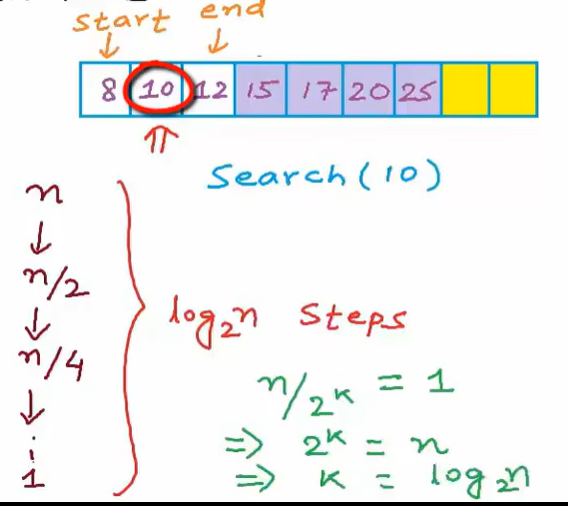 start end
8 10 12 15 17 20 25
Search(10)
n
n/2
n/4
1
log₂n steps
n/2ᴷ = 1
⇒ 2ᴷ = n
⇒ K = log₂n